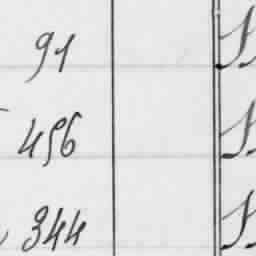 91
456
344